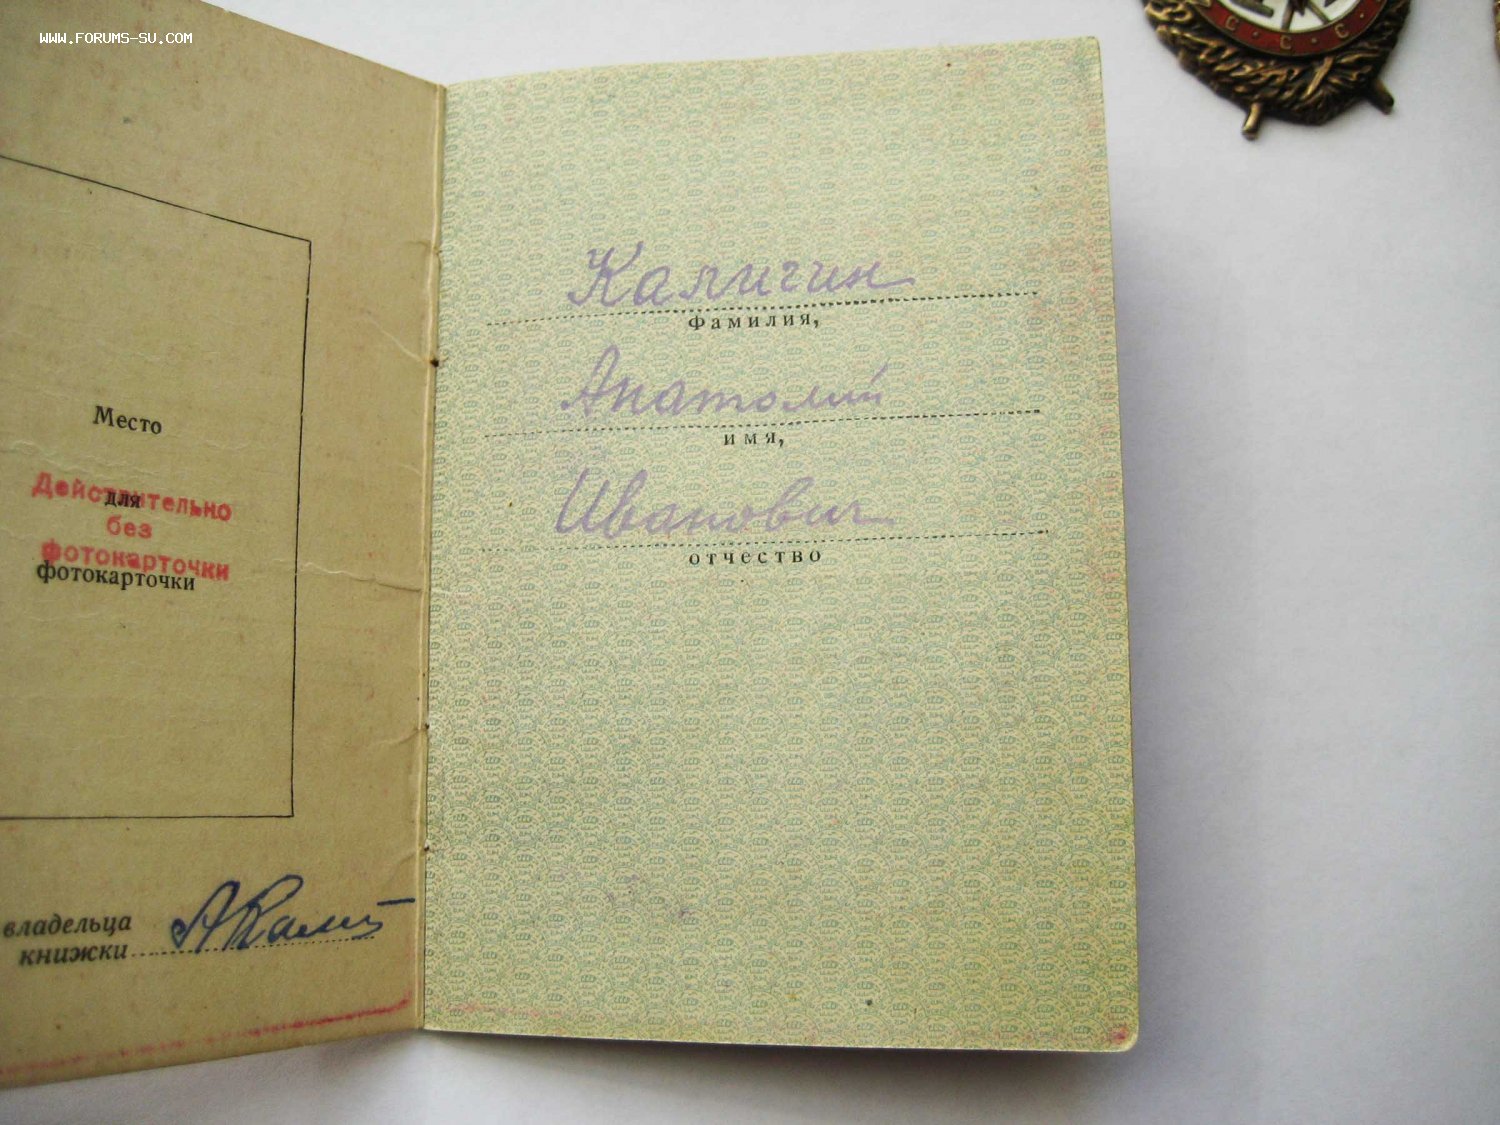 WWW.FORUMS-SU.COM
С С С
Место
для
фотокарточки
Действительно
без
фотокарточки
владельца
книжки
Калигин
фамилия,
Анатолий
имя,
Иванович
отчество